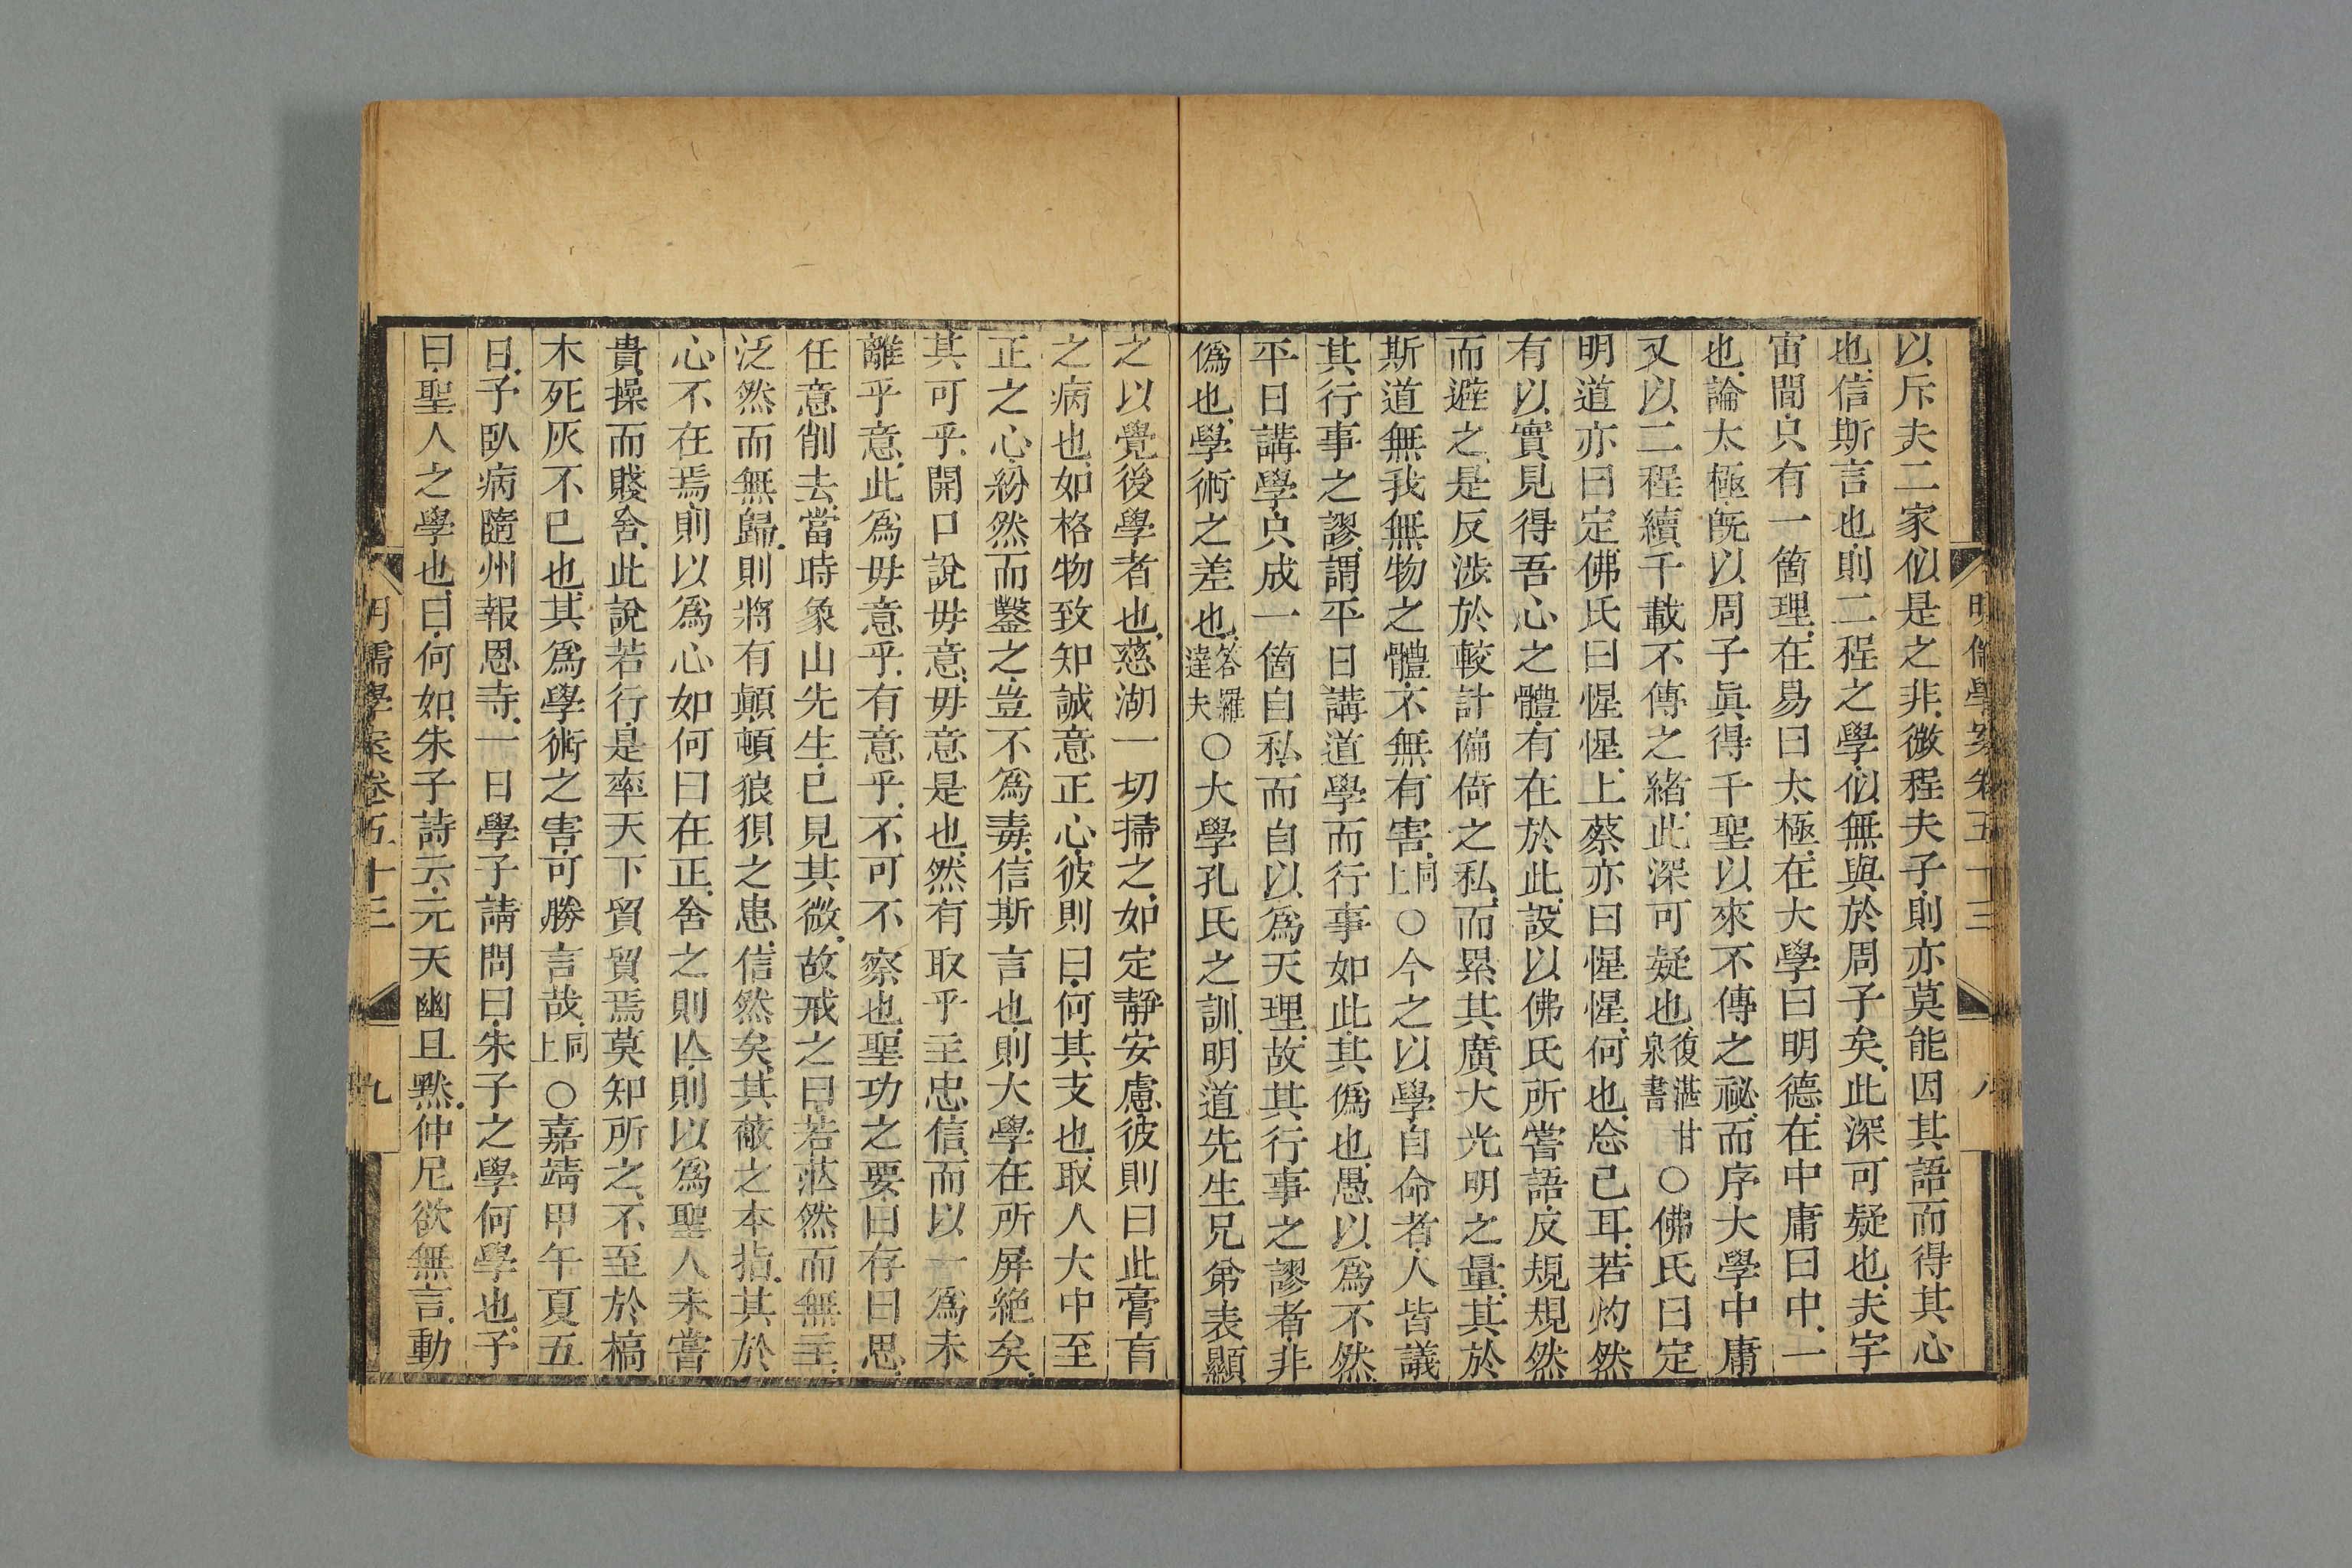 以斥夫二家似是之非微程夫子則亦莫能因其語而得其心
也信斯言也則二程之學似無與於周子矣此深可疑也夫宇
宙間只有一箇理在易曰太極在大學曰明德在中庸曰中一
也論太極旣以周子眞得千聖以來不傳之祕而序大學中庸
又以二程續千載不傳之緖此深可疑也復湛甘泉書○佛氏曰定
明道亦曰定佛氏曰惺惺上蔡亦曰惺惺何也忩己耳若灼然
有以實見得吾心之體有在於此設以佛氏所嘗語反規規然
而避之是反涉於較計偏倚之私而累其廣大光明之量其於
斯道無我無物之體不無有害同上○今之以學自命者人皆議
其行事之謬謂平日講道學而行事如此其僞也愚以爲不然
平日講學只成一箇自私而自以爲天理故其行事之謬者非
僞也學術之差也答羅達夫○大學孔氏之訓明道先生兄弟表顯
之以覺後學者也慈湖一切掃之如定靜安慮彼則曰此膏肓
之病也如格物致知誠意正心彼則曰何其支也取人大中至
正之心紛然而鑿之豈不爲毒信斯言也則大學在所屏絶矣
其可乎開口說毋意毋意是也然有取乎主忠信而以一爲未
離乎意此爲毋意乎有意乎不可不察也聖功之要曰存曰思
任意削去當時象山先生已見其微故戒之曰若茫然而無主
泛然而無歸則將有顚頓狼狽之患信然矣其蔽之本指其於
心不在焉則以爲心如何曰在正舍之則亾則以爲聖人未嘗
貴操而賤舍此說若行是率天下貿貿焉莫知所之不至於槁
木死灰不已也其爲學術之害可勝言哉同上○嘉靖甲午夏五
日予臥病隨州報恩寺一日學子請問曰朱子之學何學也予
曰聖人之學也曰何如朱子詩云元天幽且黙仲尼欲無言動
明儒學案卷五十三
九